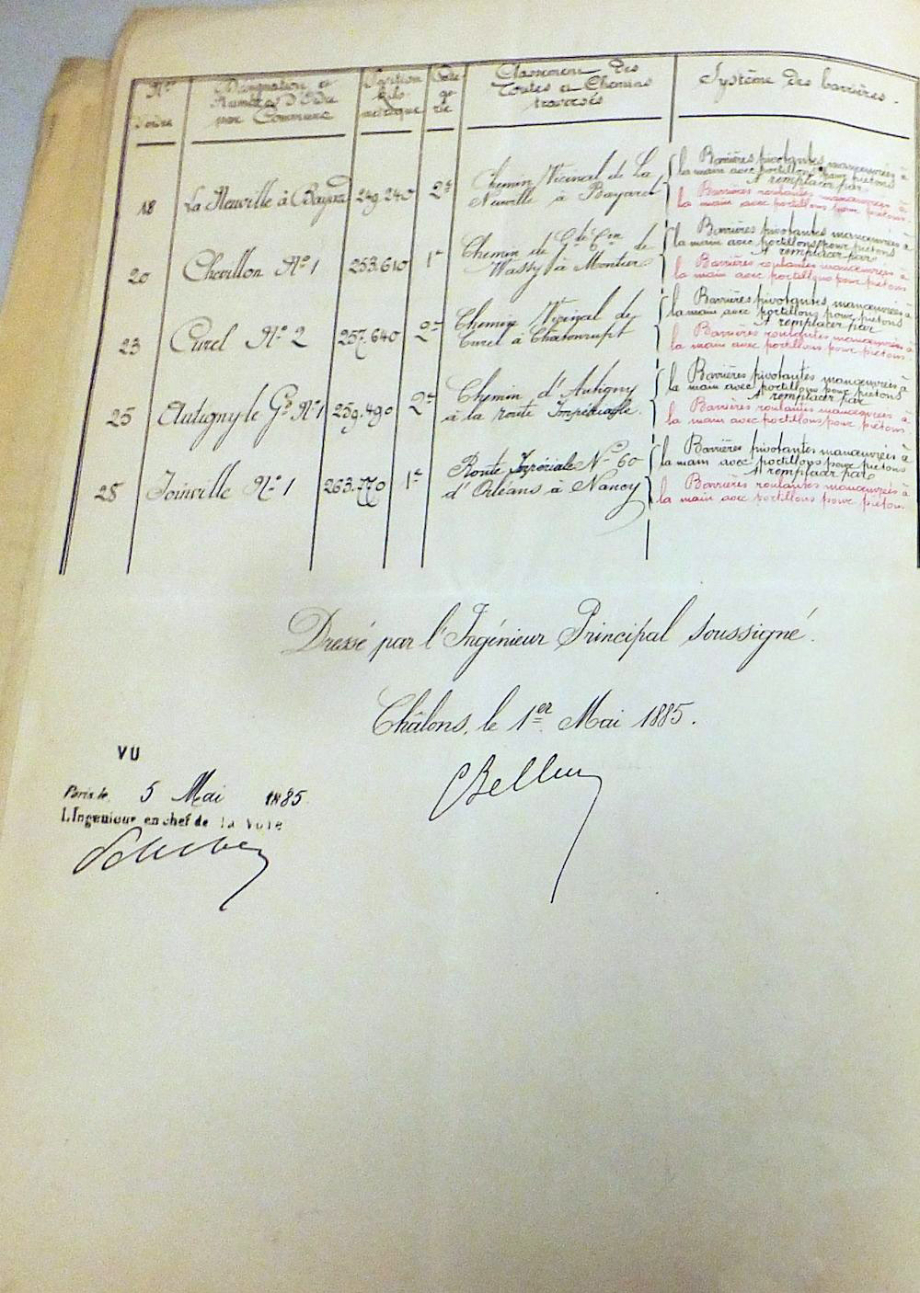 Nos d'ordre
Désignation et Numéros d'Ordre par Commune
Position kilométrique
Catégorie
Classement des Routes et Chemins traversés
Système des barrières.
18 La Neuville à Bayard 249.240 2e Chemin Vicinal de La Neuville à Bayard
Barrières pivotantes manœuvrées à
la main avec portillons pour piétons
A remplacer par
Barrières roulantes manœuvrées à
la main avec portillons pour piétons
20 Chevillon No 1 253.610 1re Chemin de Gde Con de Wassy à Montier
Barrières pivotantes manœuvrées à
la main avec portillons pour piétons
A remplacer par
Barrières roulantes manœuvrées à
la main avec portillons pour piétons
23 Curel No 2 257.640 2e Chemin Vicinal de Curel à Chatonrupt
Barrières pivotantes manœuvrées à
la main avec portillons pour piétons
A remplacer par
Barrières roulantes manœuvrées à
la main avec portillons pour piétons
25 Autigny le Gd No 1 259.490 2e Chemin d'Autigny à la route Impériale
Barrières pivotantes manœuvrées à
la main avec portillons pour piétons
A remplacer par
Barrières roulantes manœuvrées à
la main avec portillons pour piétons
28 Joinville No 1 263.770 1re Route Impériale No 60 d'Orléans à Nancy
Barrières pivotantes manœuvrées à
la main avec portillons pour piétons
A remplacer par
Barrières roulantes manœuvrées à
la main avec portillons pour piétons
Dressé par l'Ingénieur Principal soussigné.
Châlons, le 1er Mai 1885.
VU
Paris le 5 Mai 1885
L'Ingénieur en chef de la Voie